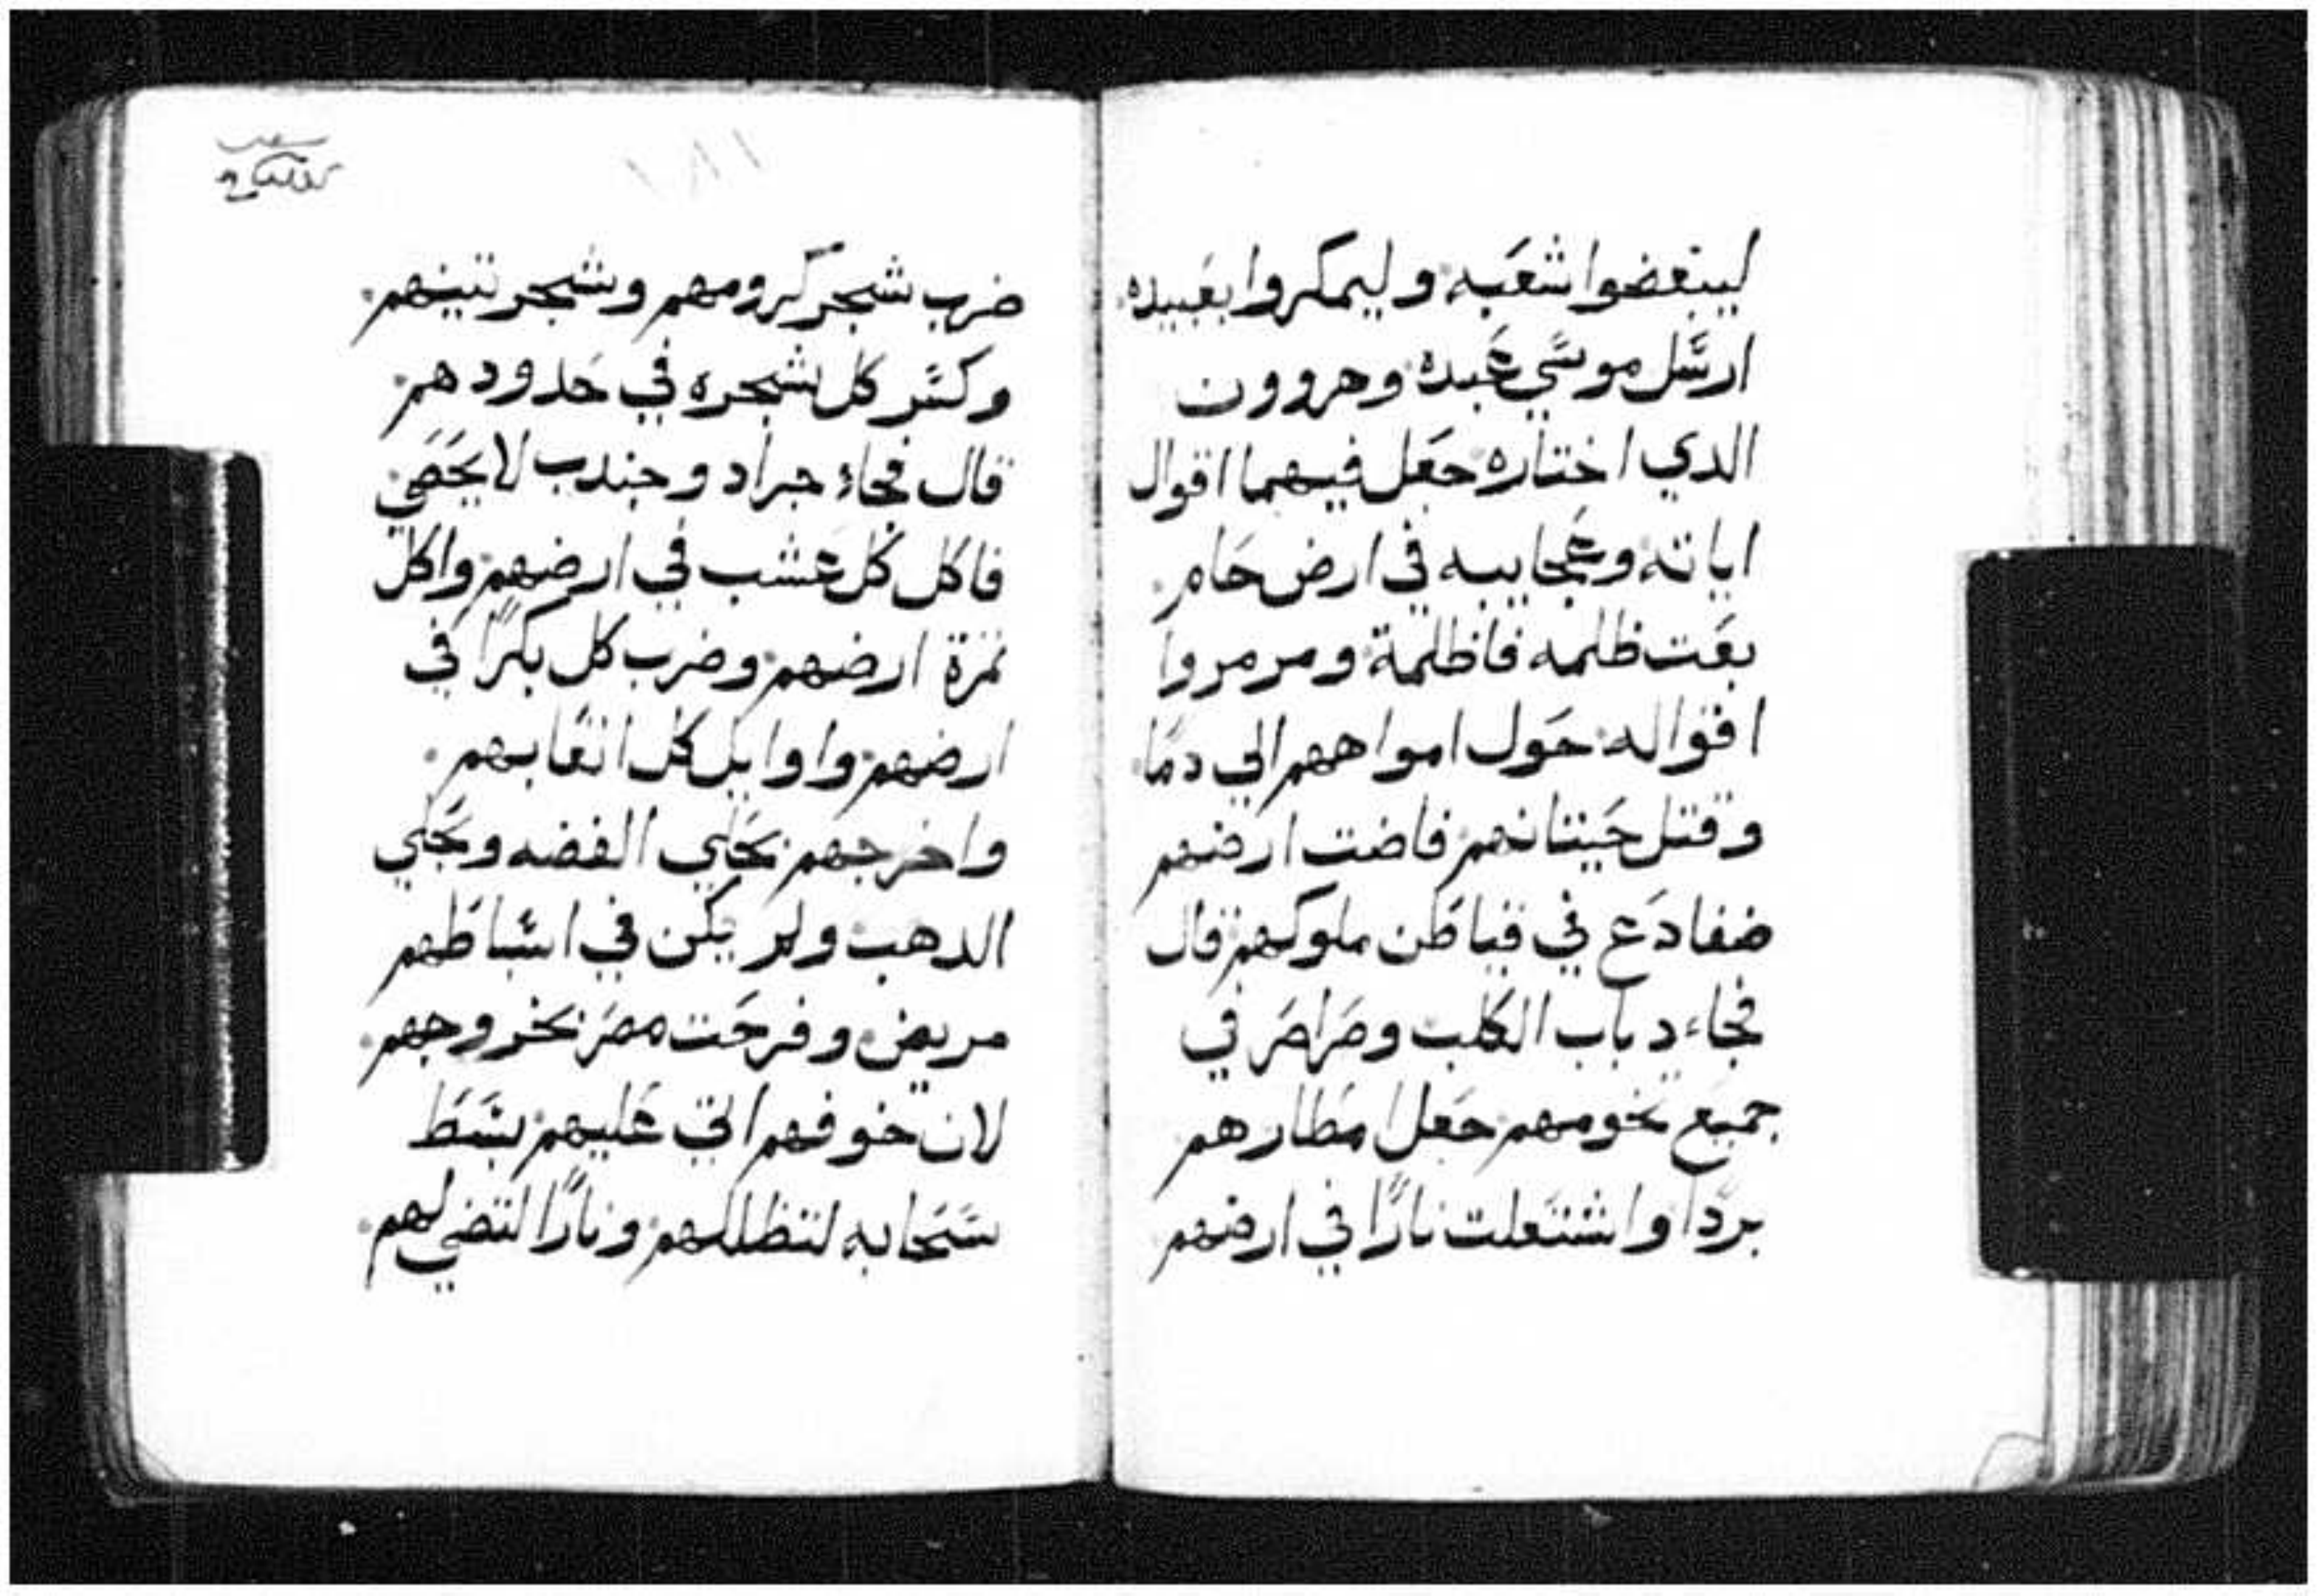 ليبغضوا شعبه وليمكروا بعبيده
ارسل موسي عبده وهروون
الدي اختاره جعل فيهما اقوال
اياته وعجايبه في ارض حام
بعت ظلمه فاظلمة ومرمروا
اقواله حول امواههم الي دما
وقتل حيتانهم فاضت ارضهم
ضفادع في قياطن ملوكهم قال
فجاء دباب الكلب وصراصر في
جميع تخومهم جعل امطارهم
بردا واشتعلت نارًا في ارضهم
١٨١
ضرب شجر كرومهم وشجر تينهم
وكسر كل شجره في حدودهم
قال فجاء جراد وجندب لا يحصي
فاكل كل عشب في ارضهم واكل
ثمرة ارضهم وضرب كل بكرًا في
ارضهم واوايل كل اتعابهم
واخرجهم بحلي الفضه وبحلي
الدهب ولم يكن في اسباطهم
مريض وفرحت مصر بخروجهم
لان خوفهم اتي عليهم بسط
سحابه لتظللهم ونارًا لتضي لهم